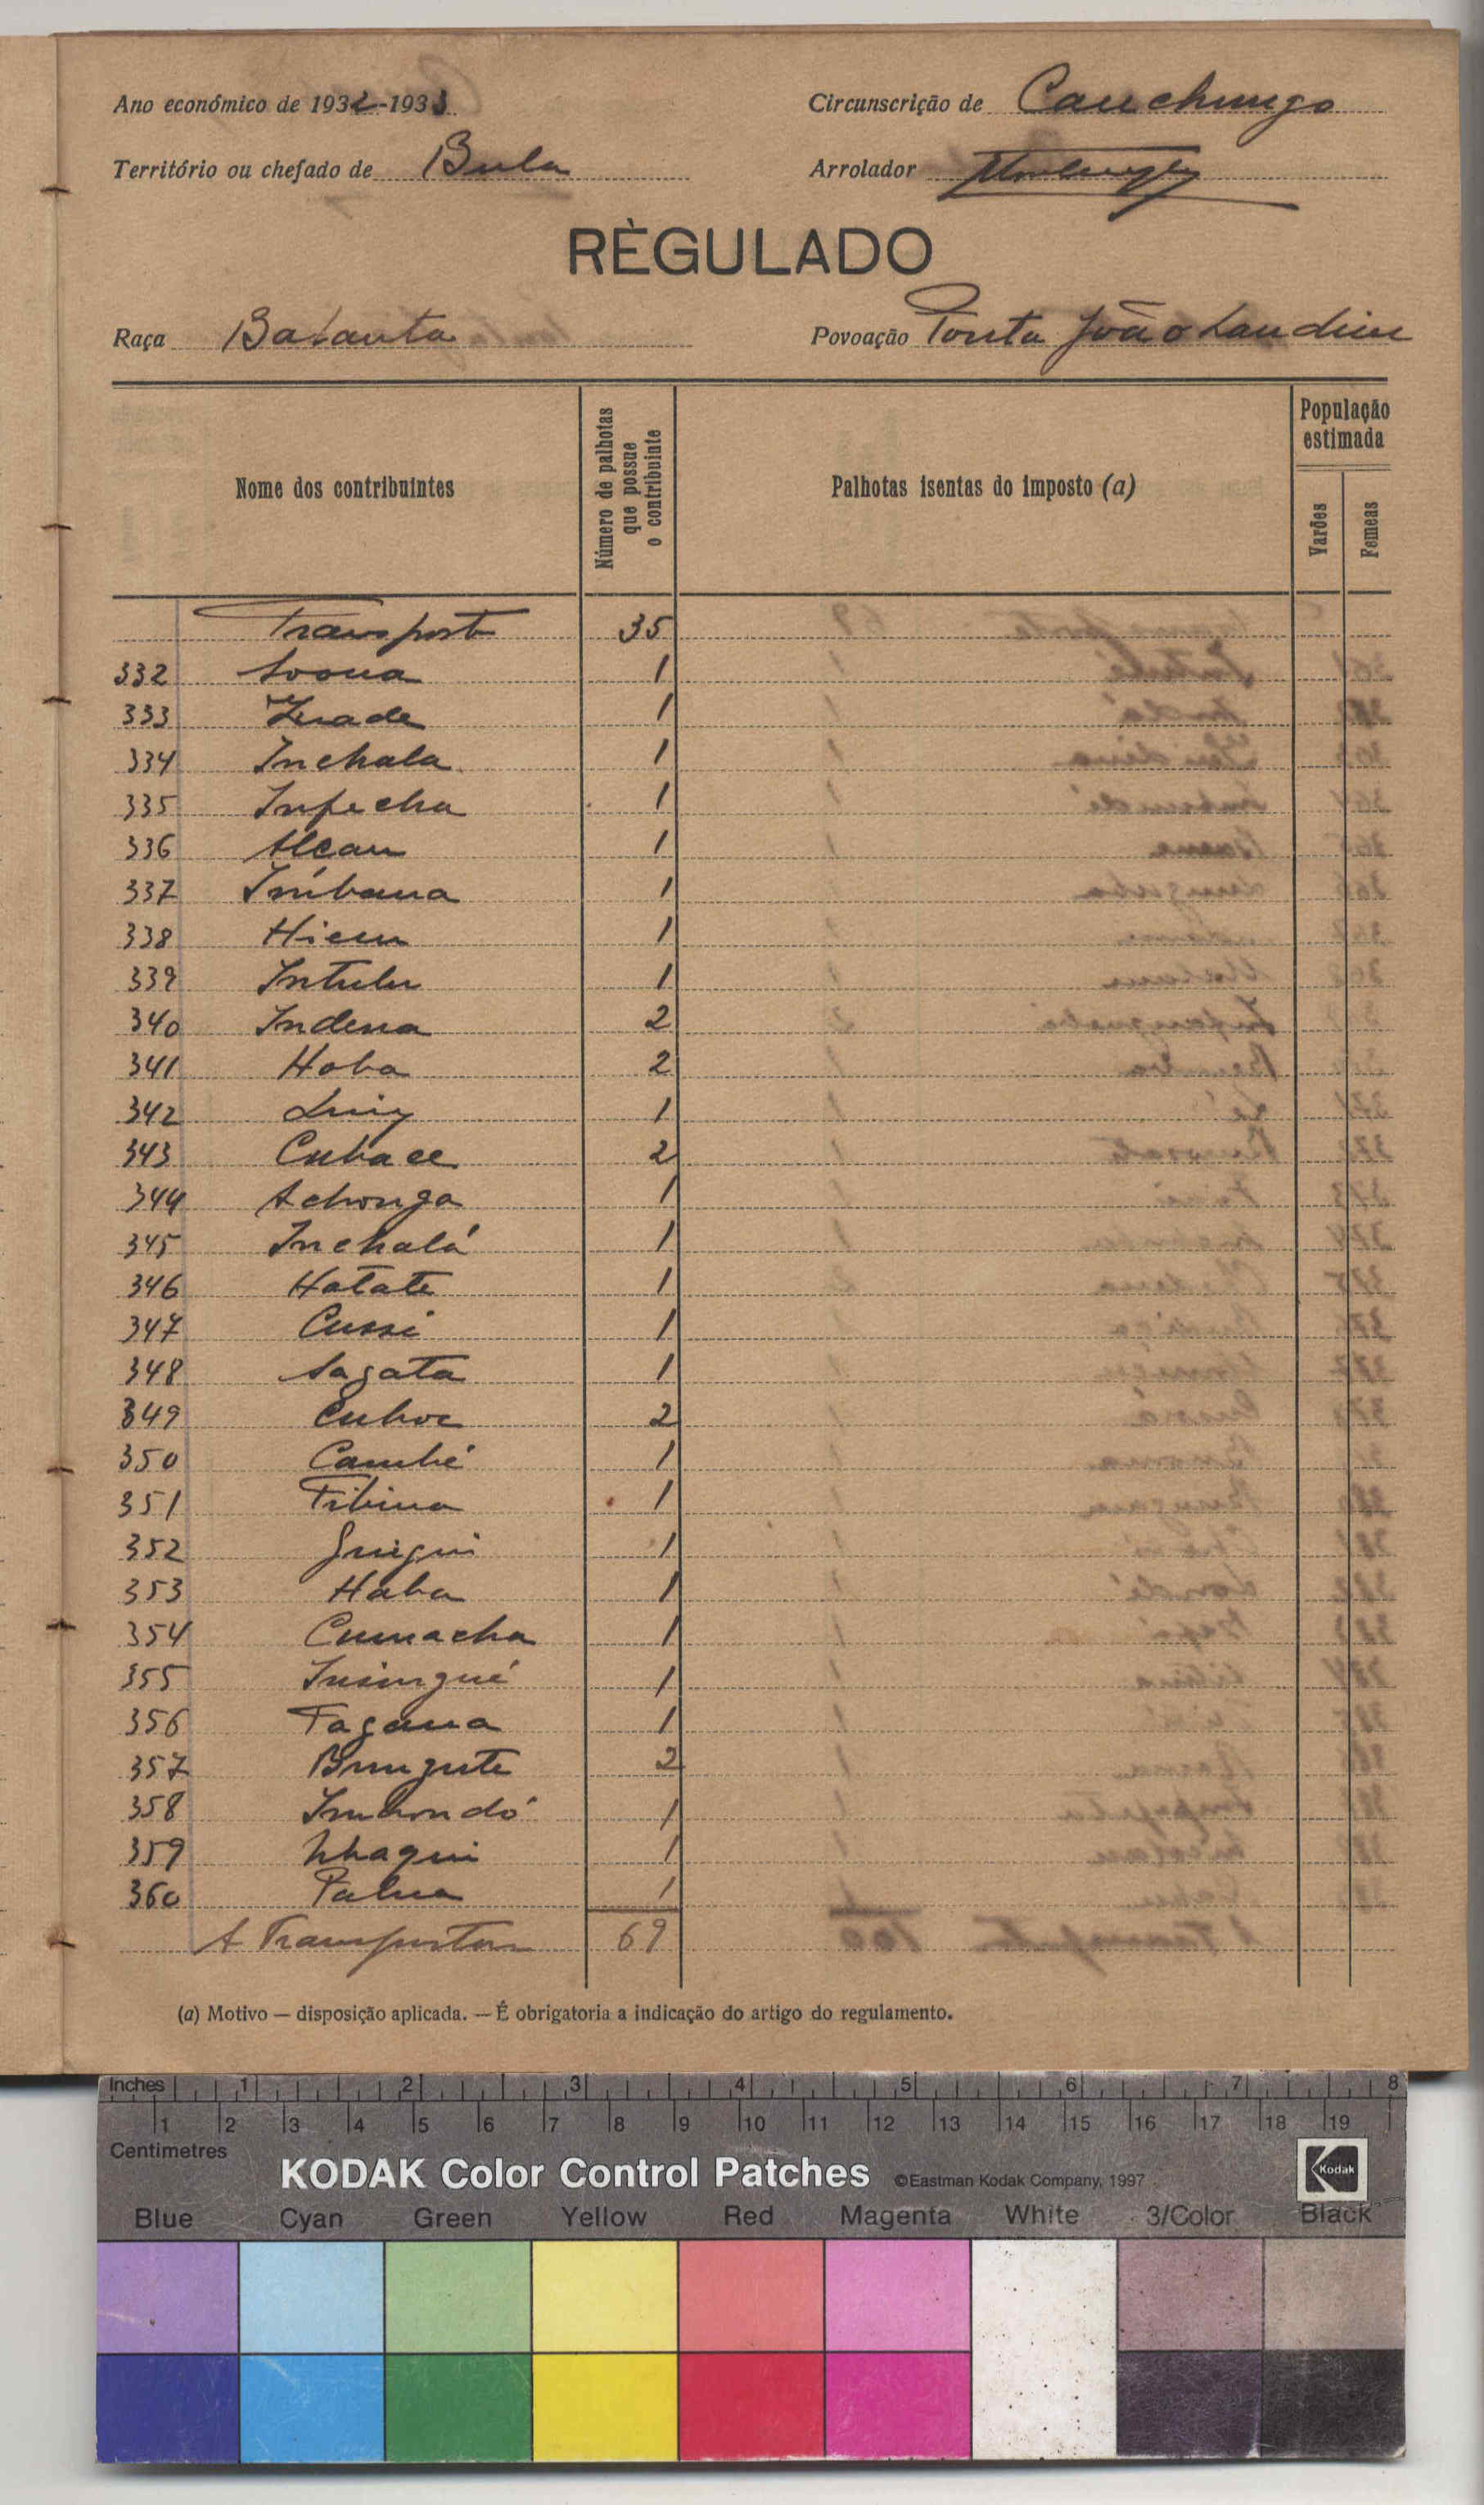 Ano económico de 1932-1933
Circunscrição de Cauchungo
Território ou chefado de Bula
Arrolador
RÈGULADO
Raça Balanta
Povoação Ponta João Landim
Nome dos contribuintes
Número de palhotas que possue o contribuinte
Palhotas isentas do imposto (a)
População estimada
Varões
Femeas
Transporte 35
332 1
333 1
334 Inchala 1
335 Infecha 1
336 Alcau 1
337 Imbana 1
338 Hiem 1
339 Intulu 1
340 Indena 2
341 Hoba 2
342 Luiz 1
343 Cubace 2
344 Achonga 1
345 Inchalá 1
346 Hatate 1
347 Cussi 1
348 Sagata 1
349 Cuboc 2
350 Cambé 1
351 Fibina 1
352 1
353 Haba 1
354 Cumacha 1
355 Insingué 1
356 Fagana 1
357 2
358 Imbondó 1
359 1
360 1
A Transportar 69
(a) Motivo — disposição aplicada. — É obrigatoria a indicação do artigo do regulamento.
Inches 1 2 3 4 5 6 7 8
1 2 3 4 5 6 7 8 9 10 11 12 13 14 15 16 17 18 19
Centimetres
KODAK Color Control Patches ©Eastman Kodak Company, 1997
Kodak
Blue Cyan Green Yellow Red Magenta White 3/Color Black